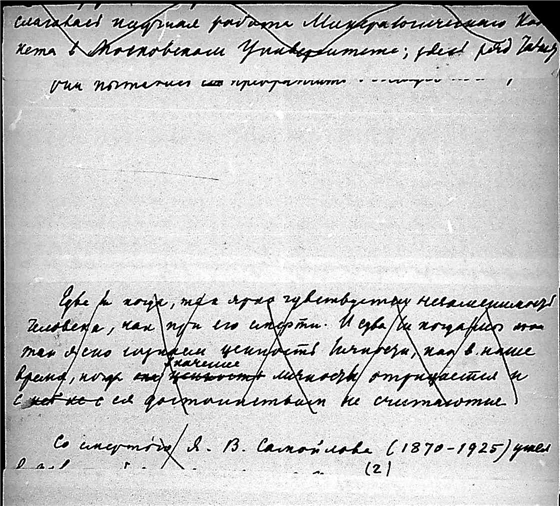 слагалась научная работа Минералогического Каби
нета в Московском Университете; здесь ряд
они пытались
Едва ли когда, так ярко чувствуется незаменимость
человека, как при его смерти. И едва ли когда
так ясно сознаем ценность личности, как в наше
значение
время, когда ценность личности отрицается и
с ея достоинством не считаются
Со смертью Я. В. Самойлова (1870-1925) ушел
(2)